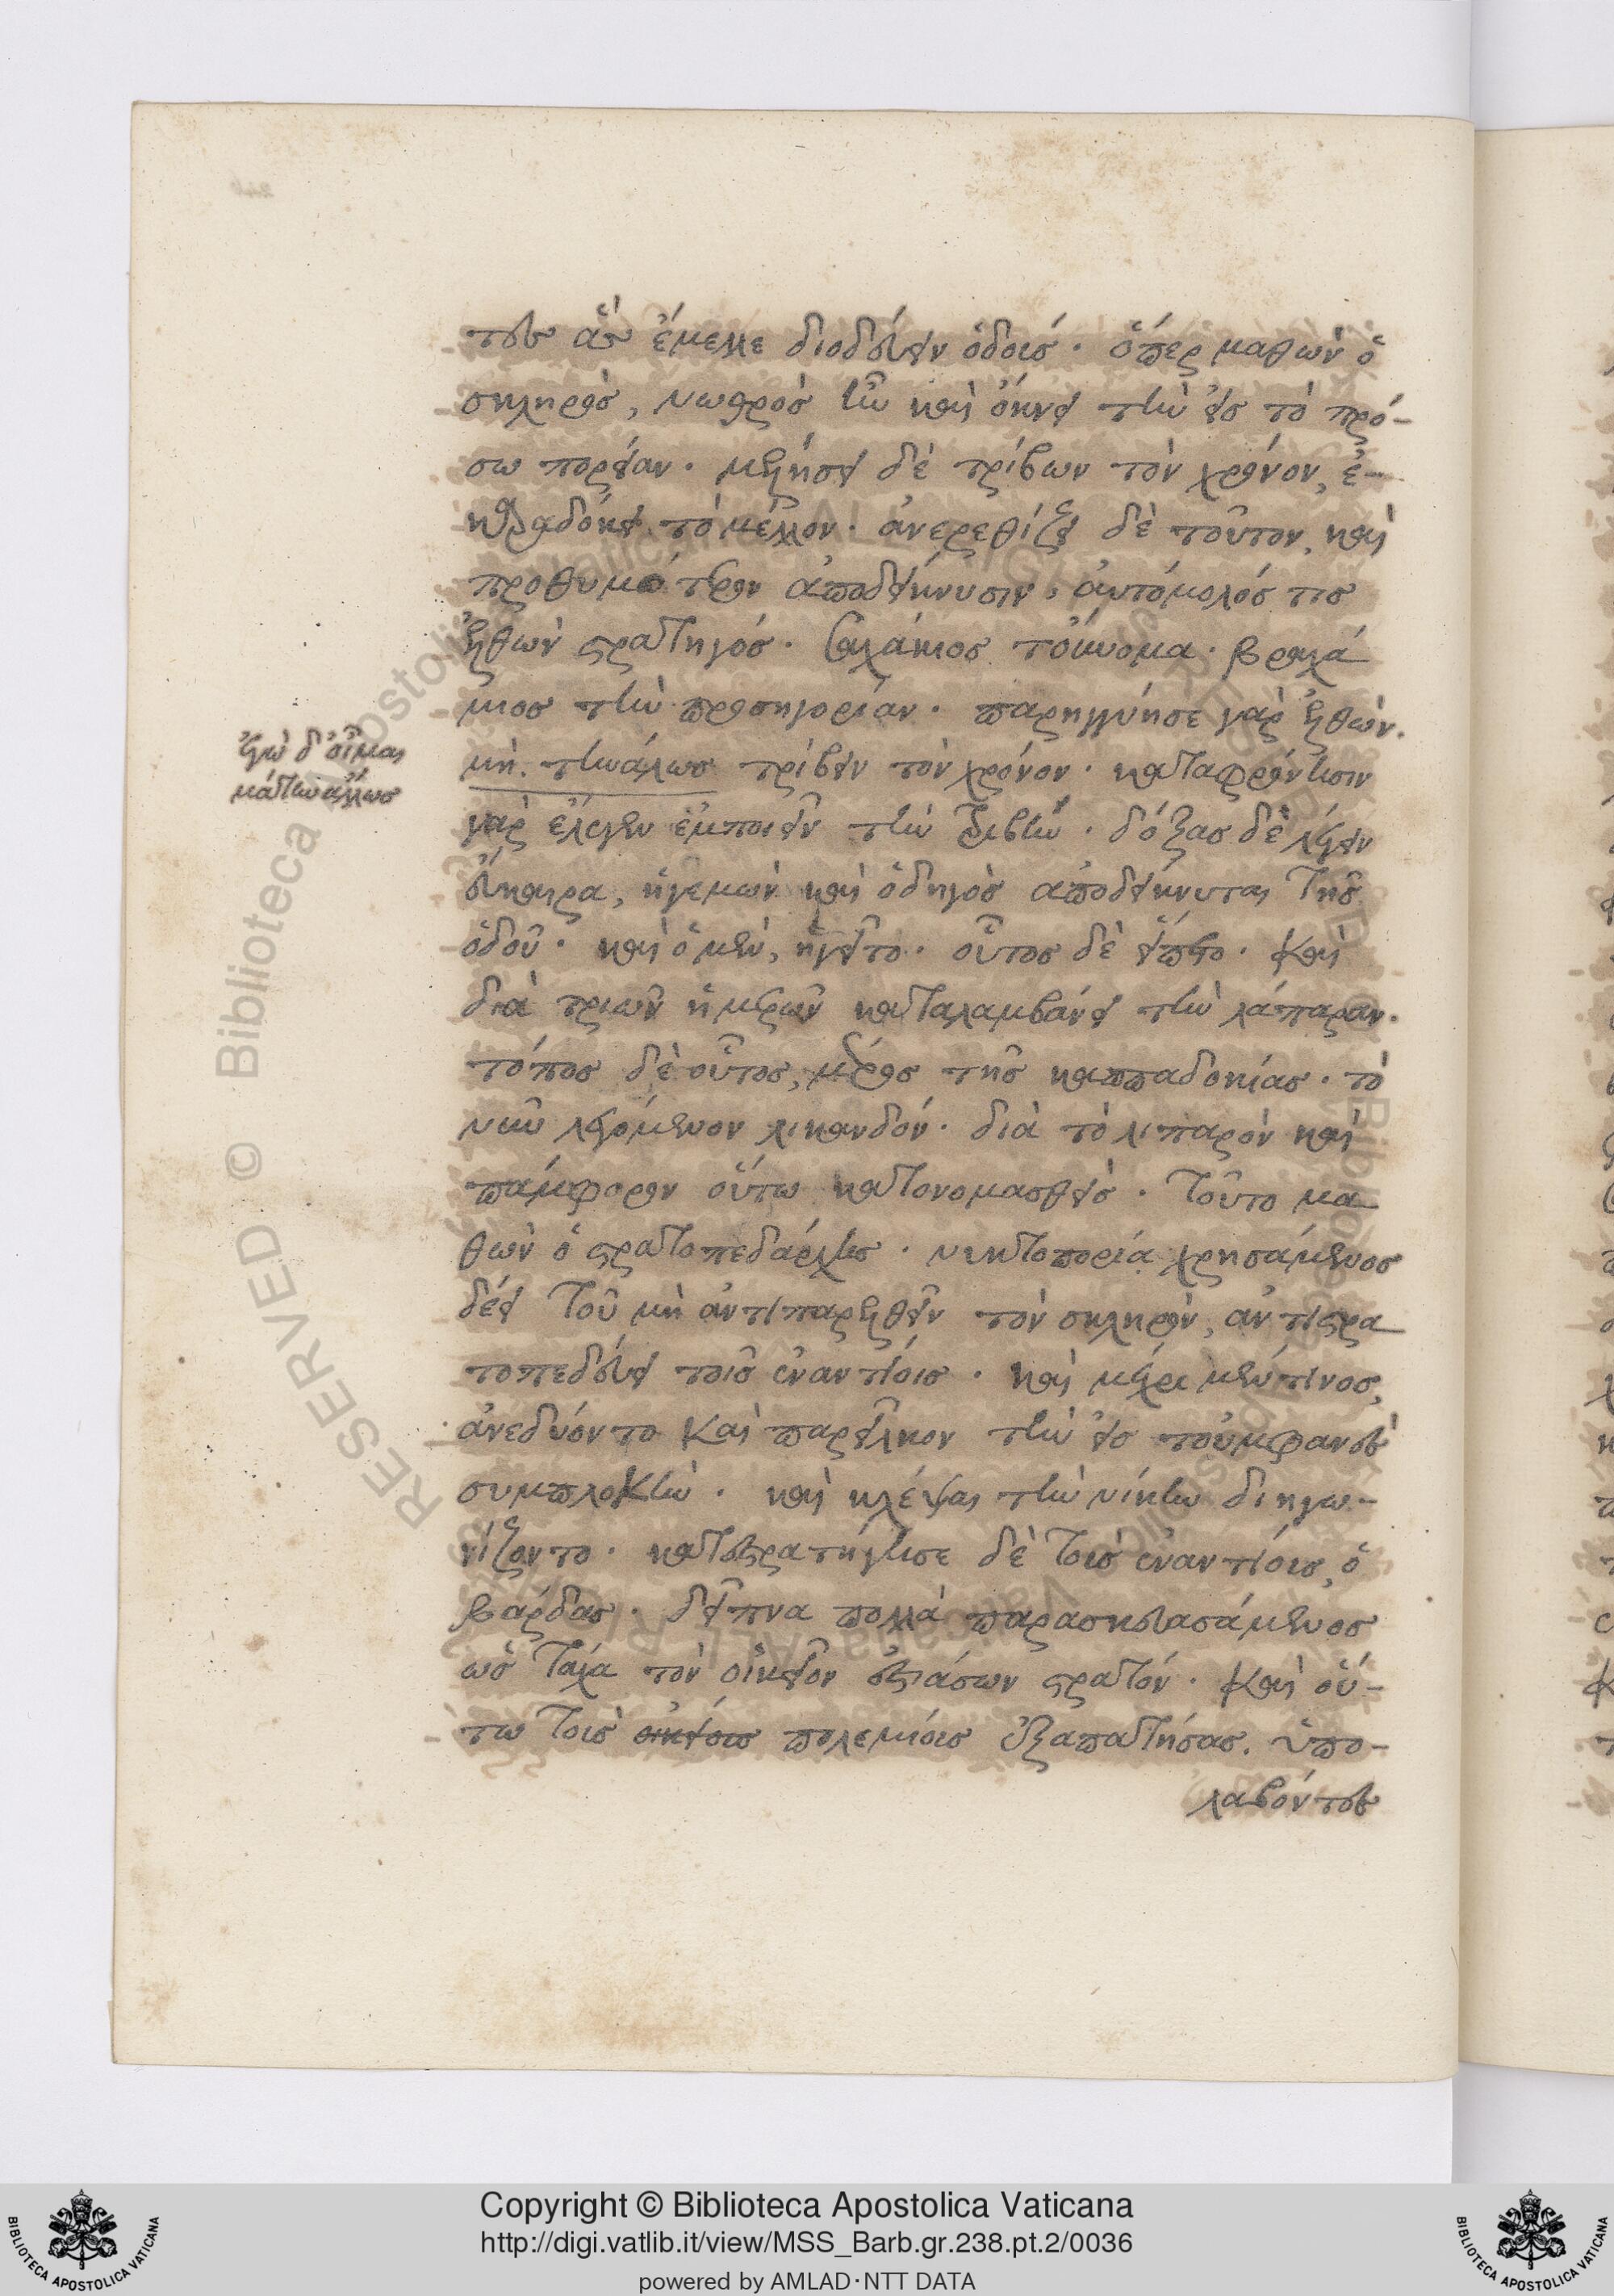 τες ἂν ἔμελλε διοδεύειν ὁδοῖς. ὅπερ μαθὼν ὁ
σκληρὸς, νωθρὸς ἦν καὶ ὀκνεῖ τὴν εἰς τὸ πρό-
σω πορείαν. μελλήσει δὲ τρίβων τὸν χρόνον, ἐ-
καραδόκει τὸ μέλλον. ἀνερεθίζει δὲ τοῦτον, καὶ
προθυμότερον ἀποδείκνυσιν, αὐτόμολός τις
ἐλθὼν στρατηγός. σαχάκιος τοὔνομα. βραχά
μιος τὴν προσηγορίαν. παρηγγύησε γὰρ ἐλθὼν.
μὴ. τηνάλως τρίβειν τὸν χρόνον. καταφρόνησιν
γὰρ ἔλεγεν ἐμποιεῖν τὴν τριβὴν. δόξας δὲ λέγειν
εὔκαιρα, ἡγεμὼν καὶ ὁδηγὸς ἀποδείκνυται τῆς
ὁδοῦ. καὶ ὁ μὲν, ἡγεῖτο. οὗτος δὲ εἵπετο. καὶ
διὰ τριῶν ἡμερῶν καταλαμβάνει τὴν λάπαραν.
τόπος δὲ οὗτος, μέρος τῆς καππαδοκίας. τὸ
νῦν λεγόμενον λικανδόν. διὰ τὸ λιπαρὸν καὶ
πάμφορον οὕτω κατονομασθεὶς. τοῦτο μα
θὼν ὁ στρατοπεδάρχης. νυκτοπορία χρησάμενος
δέει τοῦ μὴ ἀντιπαρελθεῖν τὸν σκληρὸν, ἀντιστρα
τοπεδεύει τοῖς ἐναντίοις. καὶ μέχρι μέν τινος,
ἀνεδύοντο καὶ παρεῖλκον τὴν εἰς τοὐμφανὲς
συμπλοκὴν. καὶ κλέψαι τὴν νίκην διηγω-
νίζοντο. κατεστρατήγησε δὲ τοῖς ἐναντίοις, ὁ
βάρδας. δεῖπνα πολλὰ παρασκευασάμενος
ὡς τάχα τὸν οἰκεῖον ἑστιάσων στρατόν. καὶ οὕ-
τω τοῖς οἰκείοις πολεμίοις ἐξαπατήσας. ὑπο-
λαβόντες
ἐγὼ δ' οἶμαι
μὰ τὴν ἄλλως
Copyright © Biblioteca Apostolica Vaticana
http://digi.vatlib.it/view/MSS_Barb.gr.238.pt.2/0036
powered by AMLAD·NTT DATA